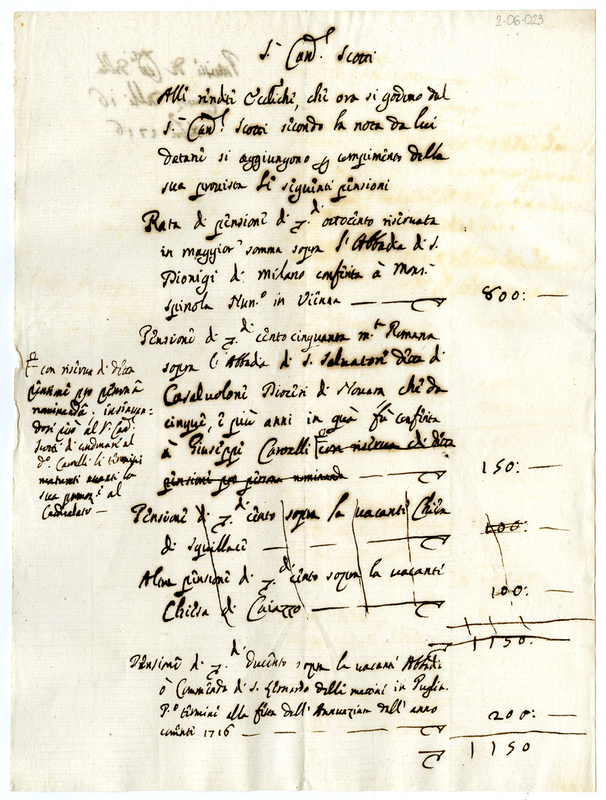 2-06-023
S.r Card.l Scotti
Alli rinditi Ecclici, che ora si godino dal
S.r Card.l Scotti secondo la nota da lui
datami si aggiungono p compimento della
sua provista li siguinti pinsioni
Rata di pinsioni di di ottocinto risirvata
in maggior somma sopra l'Abbadia di S.
Dionigi di Milano confirita à Mons.r
Spinola Nun.o in Vienna
800:
Pinsioni di di cinto cinquanta m.ta Romana
sopra l'Abbadia di S. Salvatori ditta di
Casalvoloni Diocisi di Novara chi da
cinqui, ò più anni in quà fù confirita
à Giusippi Cavalli con risirva di ditta
pinsioni pro pirsona nominand
150:
con risirva di ditta
pinsioni pro pirsona
nominanda
dosi però al S.r Card.
Scotti di al
d.o Cavalli li tirmini
maturati avanti la
sua promoz.e al
Cardinalato
Pinsioni di di cinto sopra la vacanti Chiisa
di Squillaci
100:
Altra pinsioni di di cinto sopra la vacanti
Chiisa di Caiazzo
100:
1150
Pinsioni di di ducinto sopra la vacanti Abbadia
ò Commenda di S. Lionardo dilli mattini in Puglia.
P.o tirmini alla fista dell'Annunziata dell'anno
1716
200:
1150